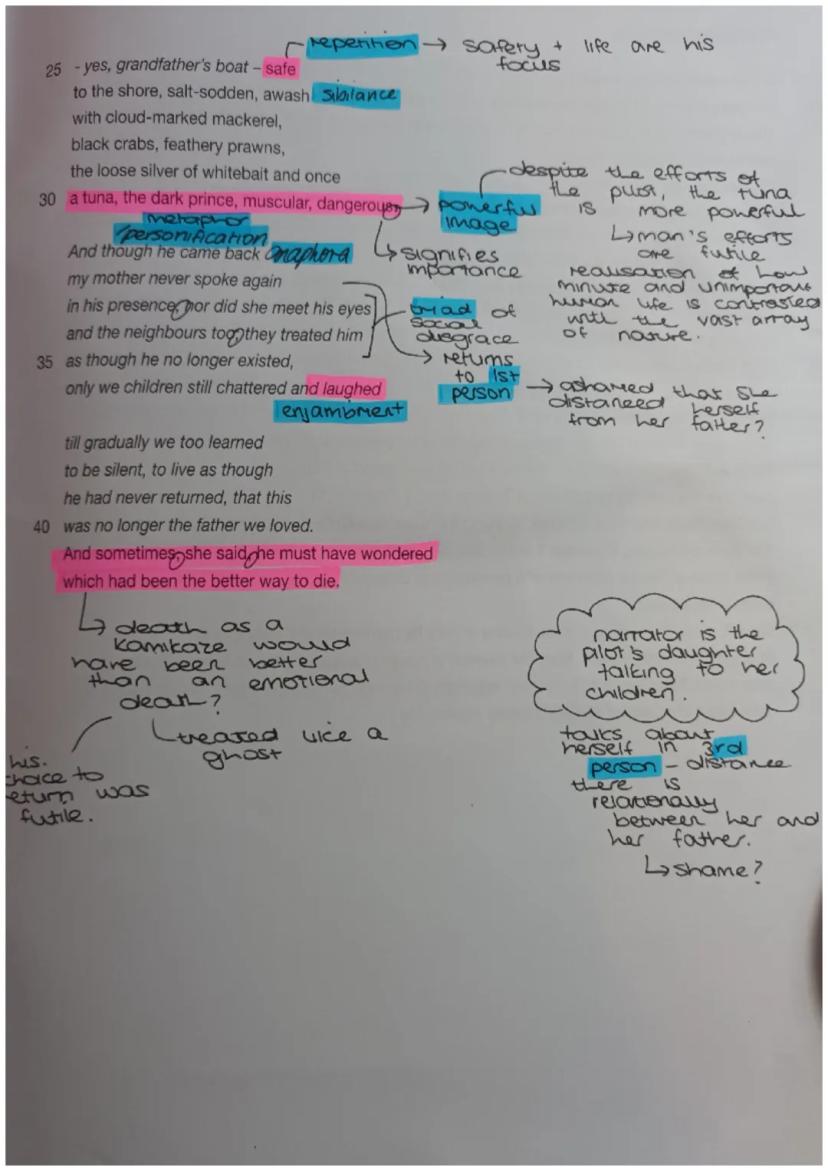 repetition → safety + life are his
focus
25 - yes, grandfather's boat – safe
to the shore, salt-sodden, awash sibilance
with cloud-marked mackerel,
black crabs, feathery prawns,
the loose silver of whitebait and once
30 a tuna, the dark prince, muscular, dangerous.
metaphor
/personification
→ powerful
image
despite the efforts of
the pilot, the tuna
is more powerful
↳ man's efforts
are futile
realisation of how
minute and unimportant
human life is contrasted
with the vast array
of nature.
↳ signifies
importance
And though he came back anaphora
my mother never spoke again
in his presence, nor did she meet his eyes
and the neighbours too, they treated him
35 as though he no longer existed,
only we children still chattered and laughed
enjambment
triad of
social
disgrace
→ returns
to 1st
person → ashamed that she
distanced herself
from her father?
till gradually we too learned
to be silent, to live as though
he had never returned, that this
40 was no longer the father we loved.
And sometimes, she said, he must have wondered
which had been the better way to die.
↳ death as a
kamikaze would
have been better
than an emotional
death?
treated like a
ghost
his.
choice to
return was
futile.
narrator is the
pilot's daughter
talking to her
children.
talks about
herself in 3rd
person – distance
there is
relationally
between her and
her father.
↳ shame?